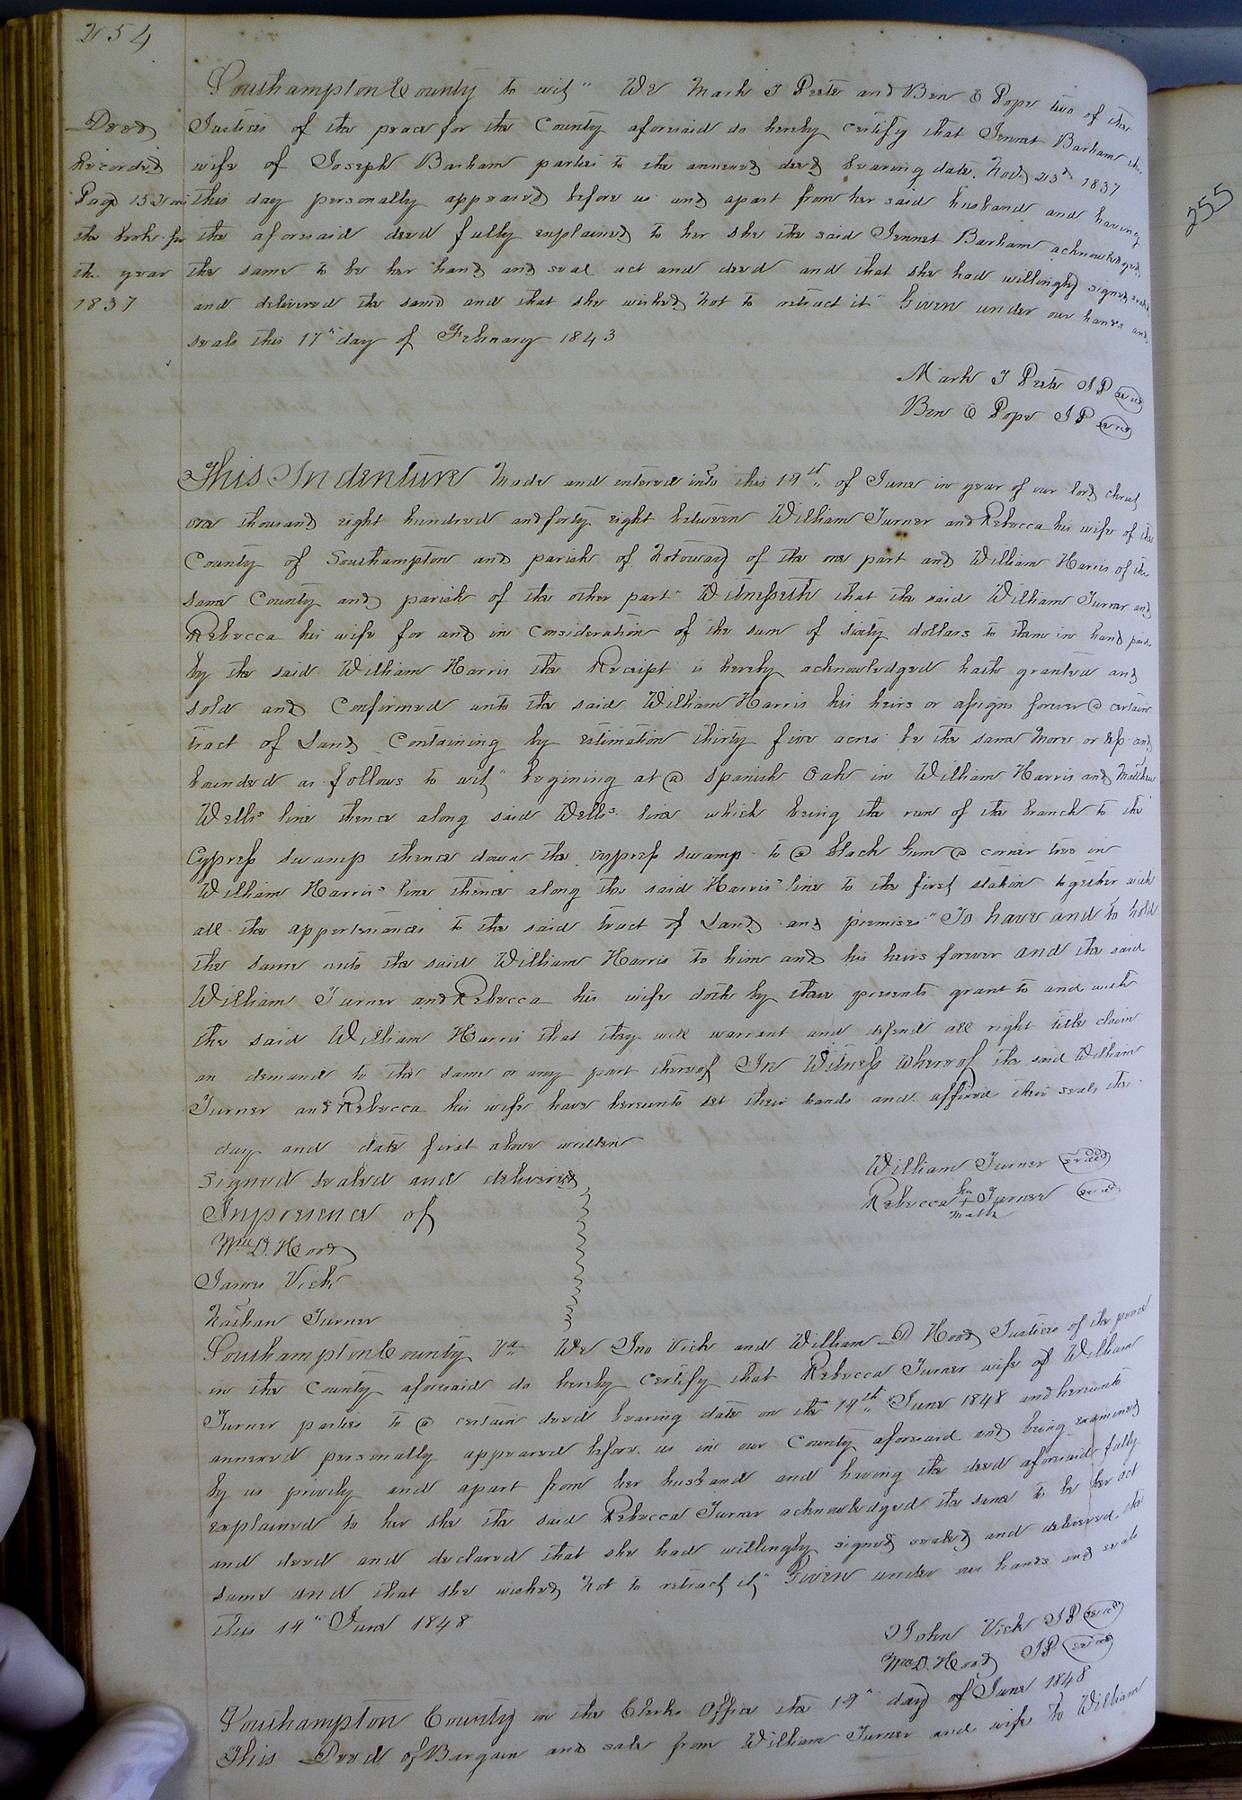 254
Southampton County to wit" We Mark J Peete and Ben E Pope two of the
Justices of the peace for the County aforesaid do hereby certify that Jennet Barham the
wife of Joseph Barham parties to the annexed deed bearing date Novr 23d 1837
this day personally appeared before us and apart from her said husband and having
the aforesaid deed fully explained to her she the said Jennet Barham acknowledged
the same to be her hand and seal act and deed and that she had willingly signed sealed
and delivered the same and that she wished not to retract it" Given under our hands and
seals this 17th day of February 1843
Deed
Recorded
Page 152 in
the book for
the year
1837
Mark J Peete JP Seal
Ben E Pope JP Seal
This Indenture Made and entered into this 19th of June in year of our lord christ
one thousand eight hundred and forty eight between William Turner and Rebecca his wife of the
County of Southampton and parish of Notoway of the one part and William Harris of the
same County and parish of the other part" Witnesseth that the said William Turner and
Rebecca his wife for and in Consideration of the sum of sixty dollars to them in hand paid
by the said William Harris the Receipt is hereby acknowledged hath granted and
sold and Confermed unto the said William Harris his heirs or assigns forever a certain
tract of Land Containing by estimation thirty five acres be the same More or less and
bounded as follows to wit" begining at a Spanish Oak in William Harris and Matthew
Wells line thence along said Wells line which being the run of the branch to the
Cypress swamp thence down the cypress swamp to a black Gum a corner tree in
William Harris' line thence along the said Harris' line to the first station together with
all the appertenances to the said tract of Land and premises" To have and to hold
the same unto the said William Harris to him and his heirs forever and the said
William Turner and Rebecca his wife doth by these presents grant to and with
the said William Harris that they will warrant and defend all right title claim
an demand to the same or any part thereof In Witness Whereof the said William
Turner and Rebecca his wife have hereunto set their hands and affixed their seals the
day and date first above written
Signed sealed and delivered
In presence of
Wm D. Hood
James Vick
Nathan Turner
William Turner Seal
Rebecca her + mark Turner Seal
Southampton County Va We Jno Vick and William D Hood Justices of the peace
in the County aforesaid do hereby certify that Rebecca Turner wife of William
Turner parties to a certain deed bearing date on the 19th June 1848 and hereunto
annexed personally appeared before us in our County aforesaid and being examined
by us privily and apart from her husband and having the deed aforesaid fully
explained to her she the said Rebecca Turner acknowledged the same to be her act
and deed and declared that she had willingly signed sealed and delivered the
same and that she wished not to retract it" Given under our hands and seals
this 19th June 1848
John Vick JP Seal
Wm D. Hood JP Seal
Southampton County in the Clerks Office the 19th day of June 1848
This Deed of Bargain and sale from William Turner and wife to William
255